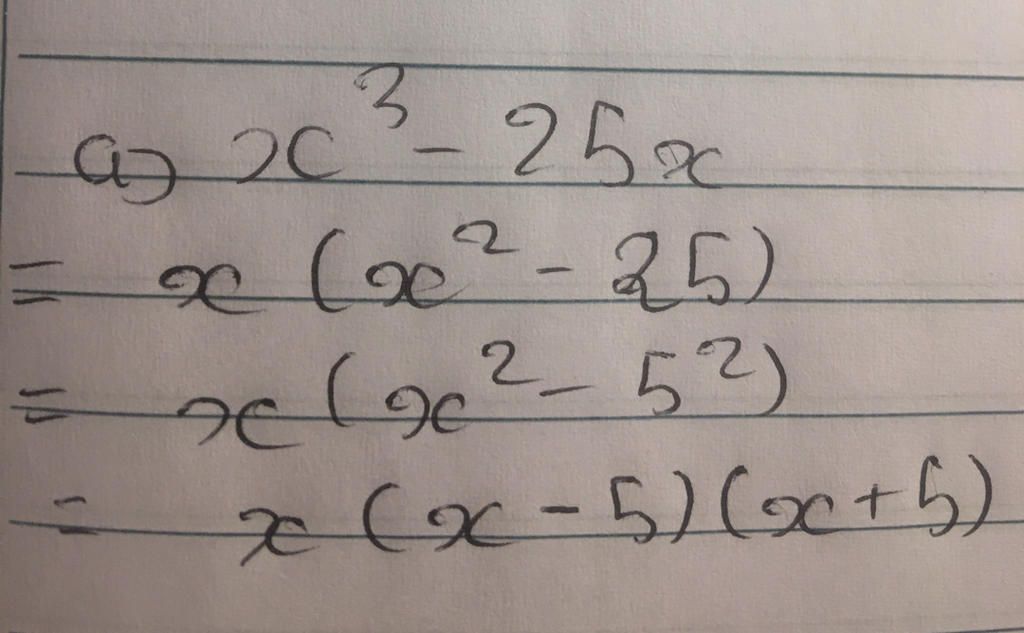 a) x³ - 25x
= x (x² - 25)
= x (x² - 5²)
= x (x - 5) (x + 5)